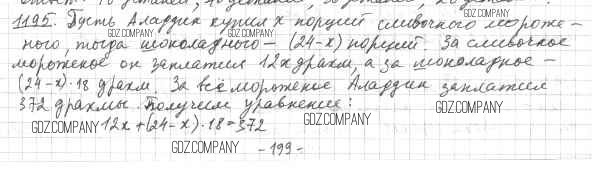 1195. Пусть Аладдин купил x порций сливочного мороже-
ного, тогда шоколадного – (24-x) порций. За сливочное
мороженое он заплатил 12x драхм, а за шоколадное –
(24-x)·18 драхм. За всё мороженое Аладдин заплатил
372 драхмы. Получим уравнение:
12x+(24-x)·18=372
- 199 -
GDZ.COMPANY
GDZ.COMPANY
GDZ.COMPANY
GDZ.COMPANY
GDZ.COMPANY
GDZ.COMPANY
GDZ.COMPANY
GDZ.COMPANY